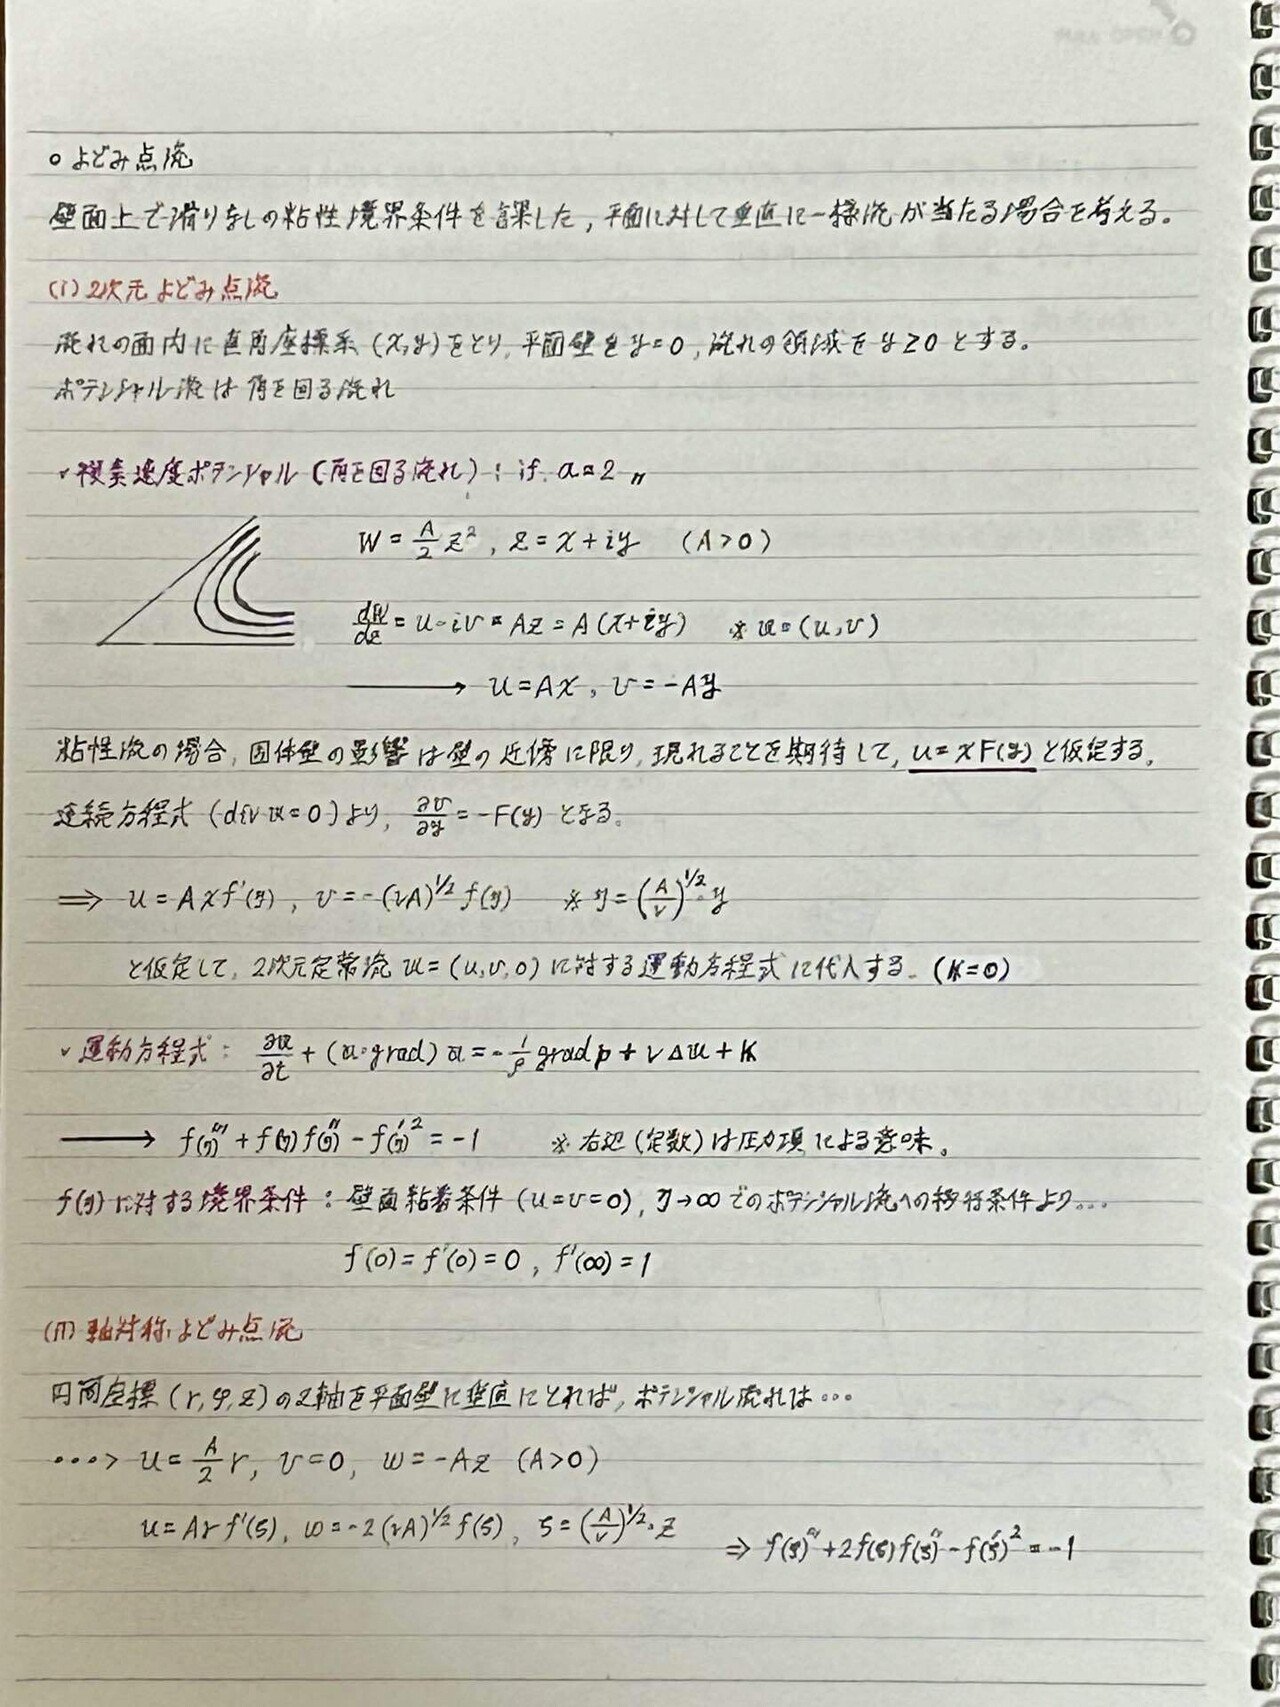 ○ よどみ点流
壁面上で滑りなしの粘性境界条件を課した, 平面に対して垂直に一様流が当たる場合を考える。
(i) 2次元よどみ点流
流れの面内に直角座標系 (x,y)をとり, 平面壁をy=0, 流れの領域をy≥0とする。
ポテンシャル流は角を回る流れ
✓複素速度ポテンシャル (角を回る流れ) : if. a=2 〃
W = A/2 z², z = x+iy (A>0)
dW/dz = u-iv = Az = A(x+iy) ※ 𝐮=(u,v)
⟶ u=Ax, v=-Ay
粘性流の場合, 固体壁の影響は壁の近傍に限り, 現れることを期待して, u=xF(y)と仮定する。
連続方程式 (div 𝐮=0)より, ∂v/∂y = -F(y) となる。
⟹ u=Axf'(η), v=-(νA)^{1/2} f(η) ※ η=(A/ν)^{1/2}・y
と仮定して, 2次元定常流 𝐮=(u,v,0)に対する運動方程式に代入する。(K=0)
✓運動方程式: ∂𝐮/∂t + (𝐮・grad)𝐮 = -1/ρ grad p + νΔ𝐮 + K
⟶ f(η)''' + f(η)f(η)'' - f(η)'² = -1 ※ 右辺(定数)は圧力項による意味。
f(η)に対する境界条件: 壁面粘着条件 (u=v=0), η→∞でのポテンシャル流への移行条件より…
f(0)=f'(0)=0, f'(∞)=1
(ii) 軸対称よどみ点流
円筒座標 (r,φ,z)のz軸を平面壁に垂直にとれば, ポテンシャル流れは…
…> u=A/2 r, v=0, w=-Az (A>0)
u=Arf'(ζ), w=-2(νA)^{1/2} f(ζ), ζ=(A/ν)^{1/2}・z ⇒ f(ζ)''' + 2f(ζ)f(ζ)'' - f(ζ)'² = -1